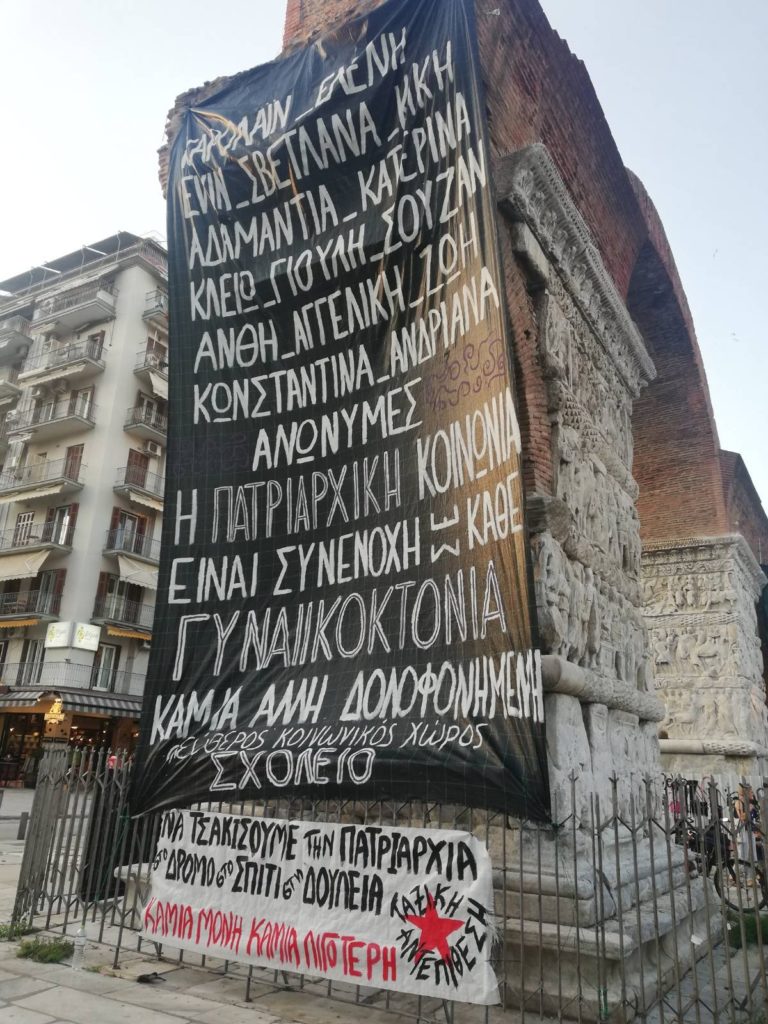 ΚΑΡΟΛΑΙΝ_ΕΛΕΝΗ
ΕΥΙΝ_ΣΒΕΤΛΑΝΑ_ΚΙΚΗ
ΑΔΑΜΑΝΤΙΑ_ΚΑΤΕΡΙΝΑ
ΚΛΕΙΩ_ΓΙΟΥΛΗ_ΣΟΥΖΑΝ
ΑΝΘΗ_ΑΓΓΕΛΙΚΗ_ΖΩΗ
ΚΩΝΣΤΑΝΤΙΝΑ_ΑΝΔΡΙΑΝΑ
ΑΝΩΝΥΜΕΣ
Η ΠΑΤΡΙΑΡΧΙΚΗ ΚΟΙΝΩΝΙΑ
ΕΙΝΑΙ ΣΥΝΕΝΟΧΗ ΣΕ ΚΑΘΕ
ΓΥΝΑΙΚΟΚΤΟΝΙΑ
ΚΑΜΙΑ ΑΛΛΗ ΔΟΛΟΦΟΝΗΜΕΝΗ
ΕΛΕΥΘΕΡΟΣ ΚΟΙΝΩΝΙΚΟΣ ΧΩΡΟΣ
ΣΧΟΛΕΙΟ
ΝΑ ΤΣΑΚΙΣΟΥΜΕ ΤΗΝ ΠΑΤΡΙΑΡΧΙΑ
ΣΤΟ ΔΡΟΜΟ ΣΤΟ ΣΠΙΤΙ ΣΤΗ ΔΟΥΛΕΙΑ
ΚΑΜΙΑ ΜΟΝΗ ΚΑΜΙΑ ΛΙΓΟΤΕΡΗ
ΤΑΞΙΚΗ
ΑΝΤΕΠΙΘΕΣΗ